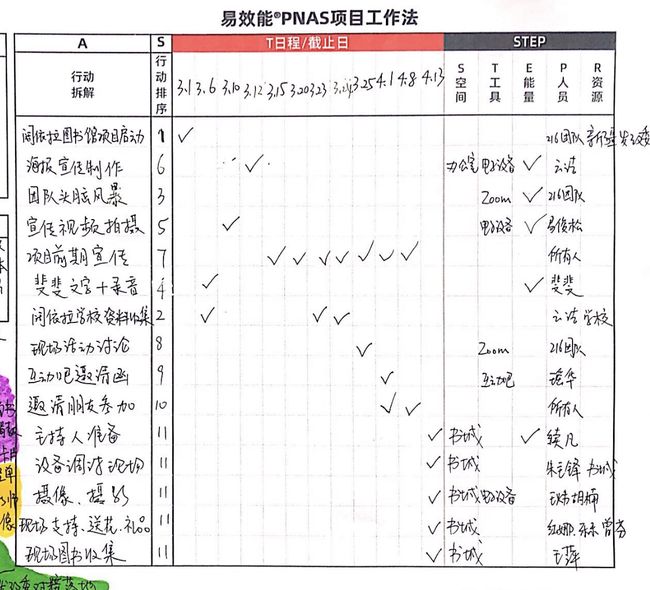 易效能®PNAS项目工作法
A S T日程/截止日 STEP
行动拆解 行动排序 3.1 3.6 3.10 3.12 3.15 3.20 3.23 3.24 3.25 4.1 4.8 4.13 S空间 T工具 E能量 P人员 R资源
阅依拉图书馆项目启动 1 ✓ 216团队
海报宣传制作 6 ✓ 办公室 电子设备 ✓ 云洁
团队头脑风暴 3 Zoom ✓ 216团队
宣传视频拍摄 5 ✓ 电子设备 ✓ 易俊松
项目前期宣传 7 ✓ ✓ ✓ ✓ ✓ ✓ ✓ 所有人
斐斐文字+录音 4 ✓ ✓ 斐斐
阅依拉学校资料收集 2 ✓ ✓ ✓ 云洁 学校
现场活动讨论 8 ✓ Zoom 216团队
互动吧邀请函 9 ✓ 互动吧
邀请朋友参加 10 ✓ ✓ 所有人
主持人准备 11 ✓ 书城 ✓ 续凡
设备调试现场 11 ✓ 书城 书城
摄像、摄影 11 ✓ 书城 电子设备
现场支持、送花、礼品 11 ✓ 书城
现场图书收集 11 ✓ 书城 王萍